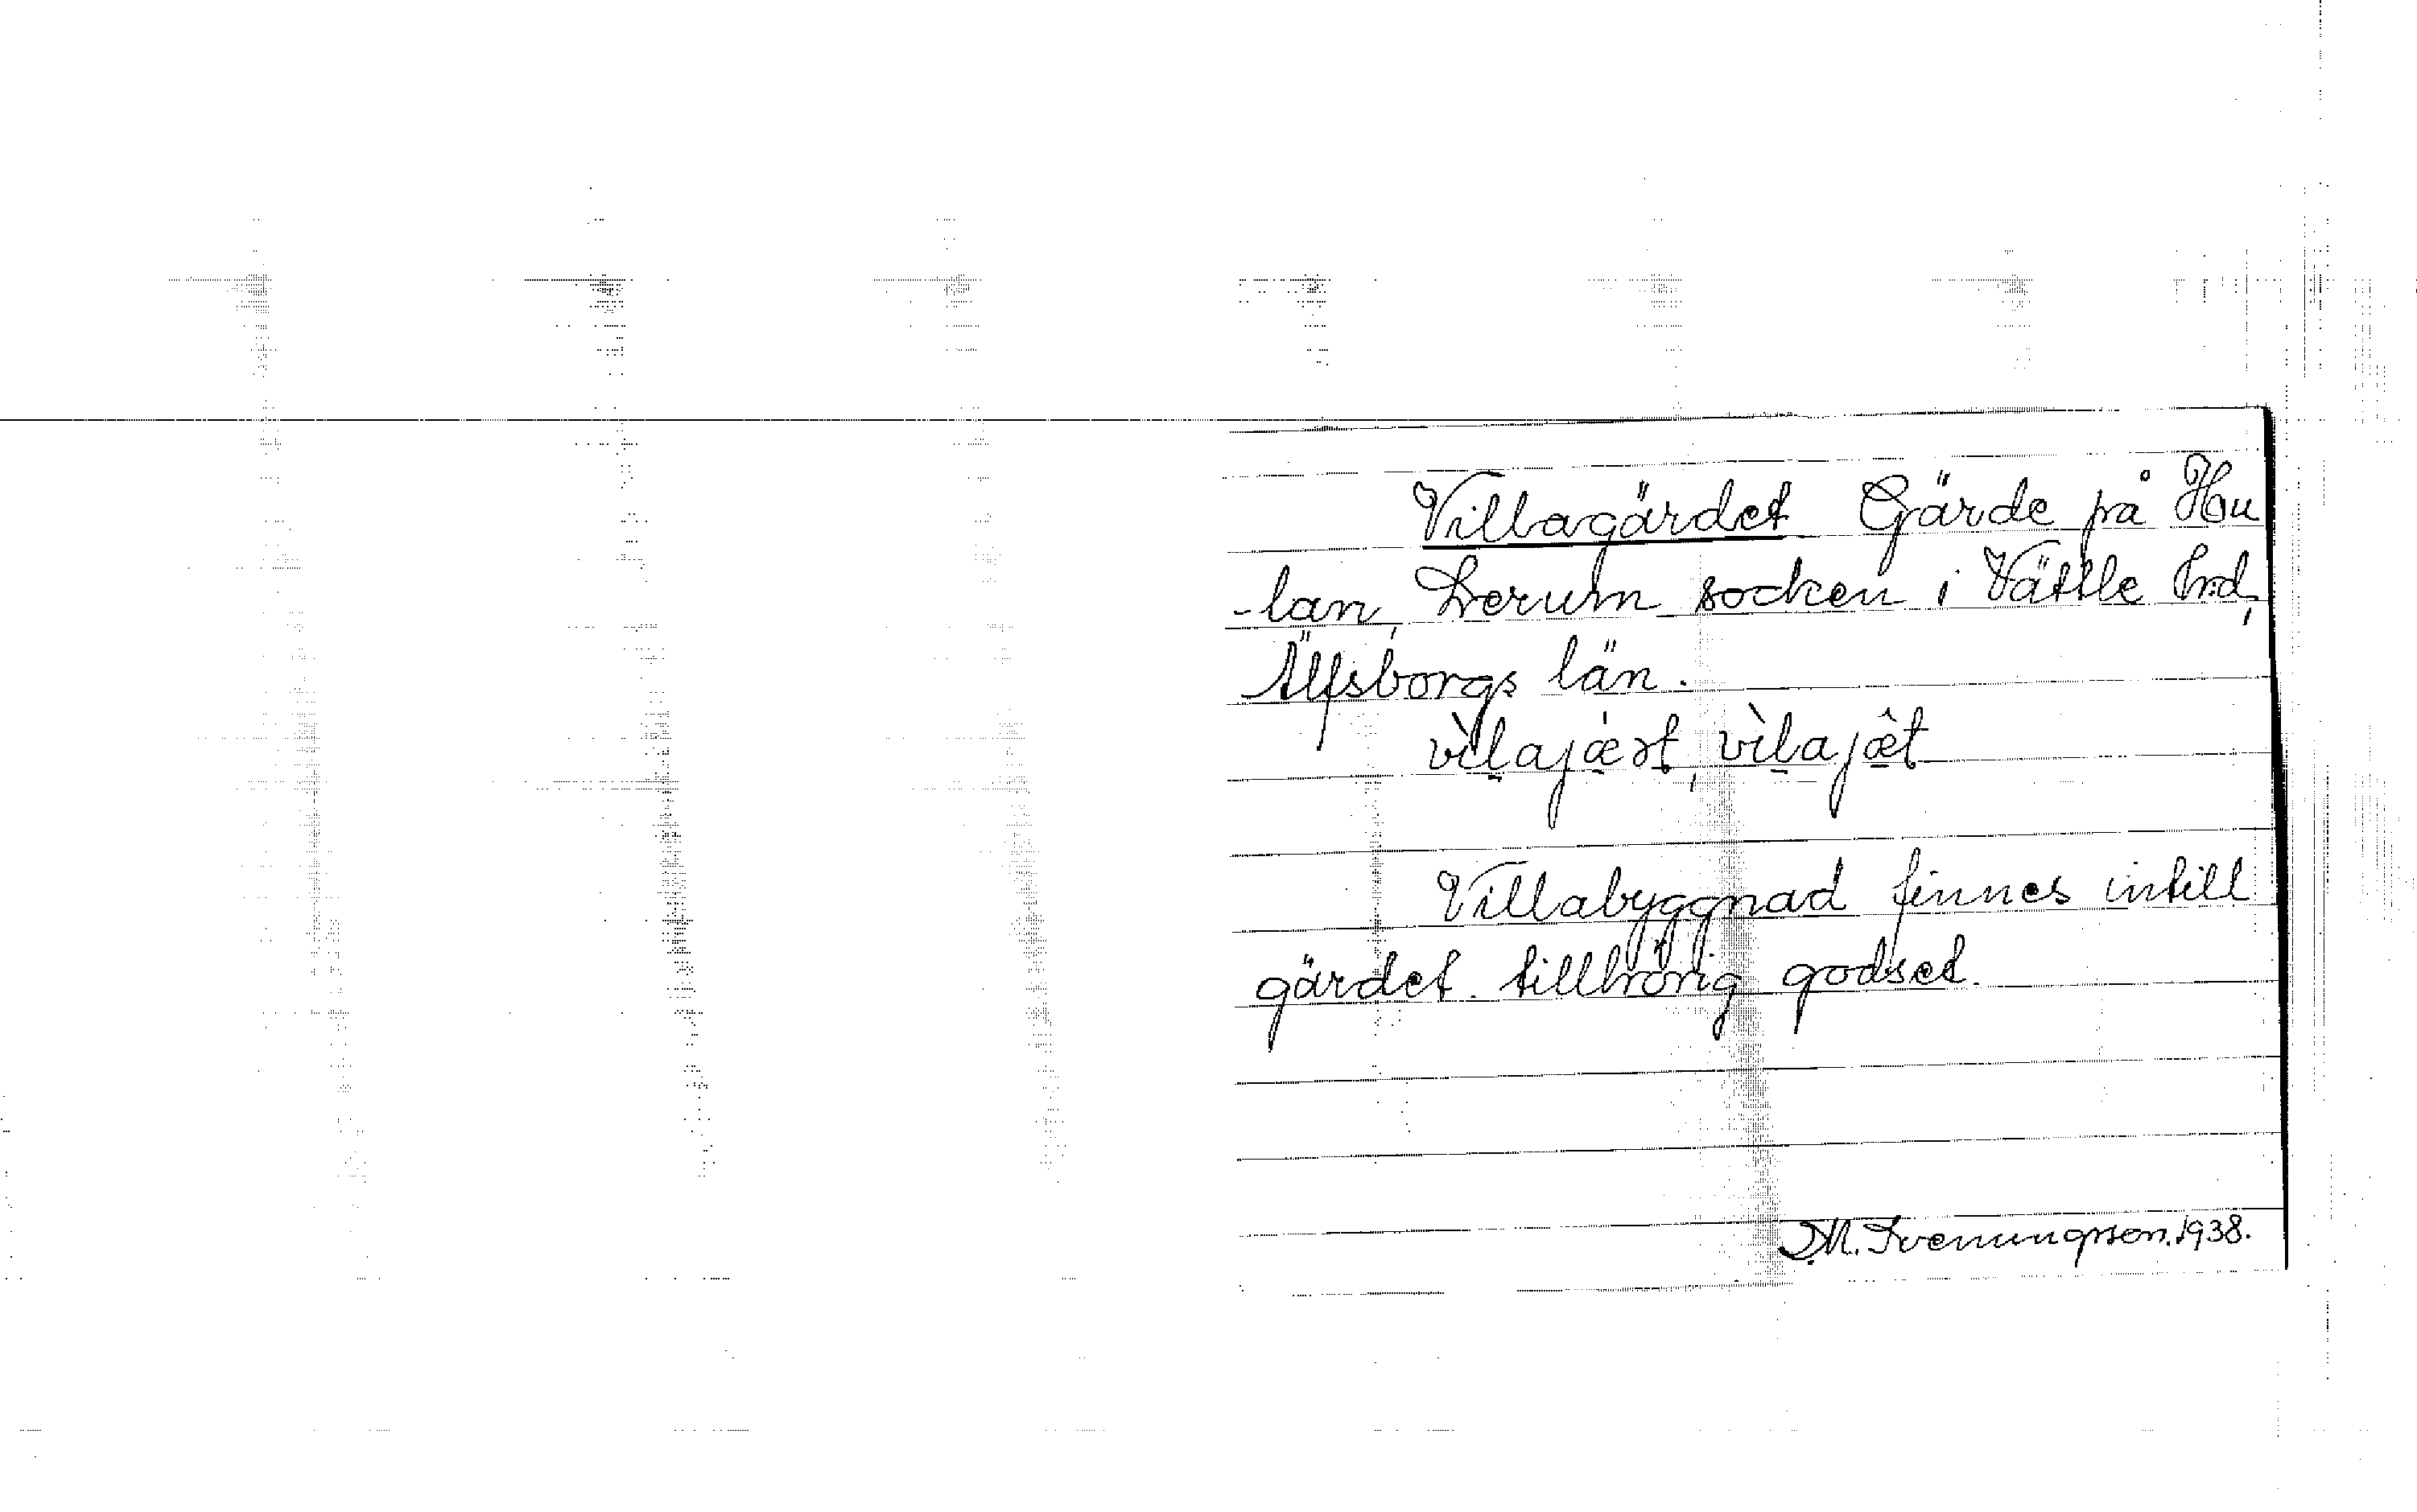 Villagärdet Gärde på Hu
-lan, Lerum socken i Vättle hrd,
Älfsborgs län.
vìlajæ̇rt, vìlajæ̂t
Villabyggnad finnes intill
gärdet tillhörig godset.
M. Svenungsson. 1938.